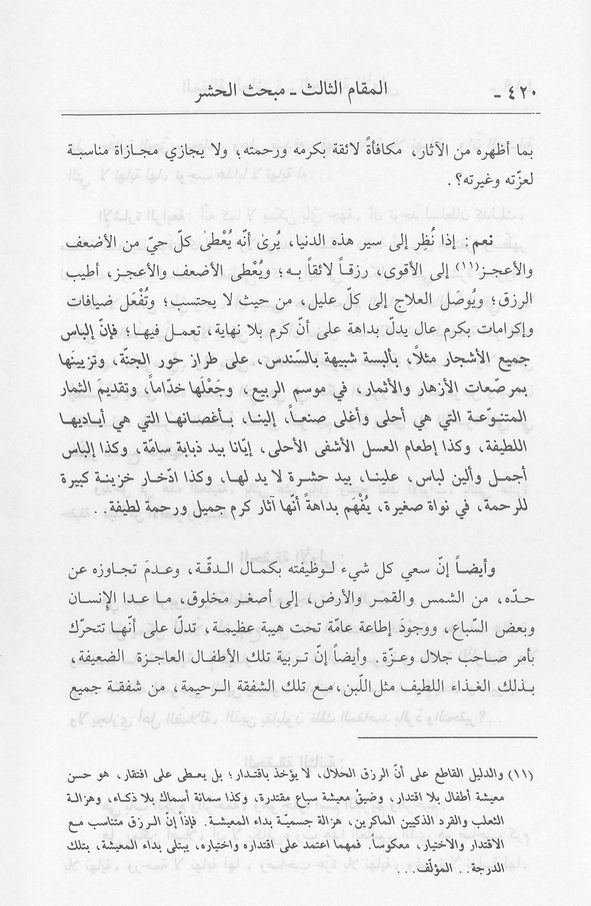 ٤٢٠ - المقام الثالث - مبحث الحشر
بما أظهره من الآثار، مكافأةً لائقة بكرمه ورحمته؛ ولا يجازي مجازاة مناسبة
لعزّته وغيرته؟.
نعم: إذا نُظِر إلى سير هذه الدنيا، يُرىٰ أنّه يُعْطىٰ كلّ حيّ من الأضعف
والأعجز(١١) إلى الأقوى، رزقاً لائقاً به؛ ويُعْطى الأضعف والأعجز، أطيب
الرزق؛ ويُوصَل العلاج إلى كلّ عليل، من حيث لا يحتسب؛ وتُفْعَل ضيافات
وإكرامات بكرم عال يدلّ بداهة على أنّ كرم بلا نهاية، تعمل فيها؛ فإنّ إلباس
جميع الأشجار مثلاً، بألبسة شبيهة بالسّندس، على طراز حور الجنّة، وتزيينَها
بمرصّعات الأزهار والأثمار، في موسم الربيع، وجَعْلها خدّاماً، وتقديمَ الثمار
المتنوّعة التي هي أحلى وأغلى صنعاً، إلينا، بأغصانها التي هي أياديها
اللطيفة، وكذا إطعام العسل الأشفى الأحلى، إيّانا بيد ذبابة سامّة، وكذا إلباس
أجمل وألين لباس، علينا، بيد حشرة لا يد لها، وكذا ادّخار خزينة كبيرة
للرحمة، في نواة صغيرة، يُفْهَم بداهةً أنّها آثار كرم جميل ورحمة لطيفة..
وأيضاً إنّ سعي كل شيء لوظيفته بكمال الدقّة، وعدمَ تجاوزه عن
حدّه، من الشمس والقمر والأرض، إلى أصغر مخلوق، ما عدا الإنسان
وبعض السّباع، ووجودَ إطاعة عامّة تحت هيبة عظيمة، تدلّ على أنّها تتحرّك
بأمر صاحب جلال وعزّة. وأيضاً إنّ تربية تلك الأطفال العاجزة الضعيفة،
بذلك الغذاء اللطيف مثل اللّبن، مع تلك الشفقة الرحيمة، من شفقة جميع
(١١) والدليل القاطع على أنّ الرزق الحلال، لا يؤخذ باقتدار؛ بل يعطى على افتقار، هو حسن
معيشة أطفال بلا اقتدار، وضيقُ معيشة سباع مقتدرة، وكذا سمانة أسماك بلا ذكاء، وهزالة
الثعلب والقرد الذكيين الماكرين، هزالة جسميّة بداء المعيشة. فإذاً إنّ الرزق متناسب مع
الاقتدار والاختيار، معكوساً. فمهما اعتمد على اقتداره واختياره، يبتلى بداء المعيشة، بتلك
الدرجة.. المؤلّف...